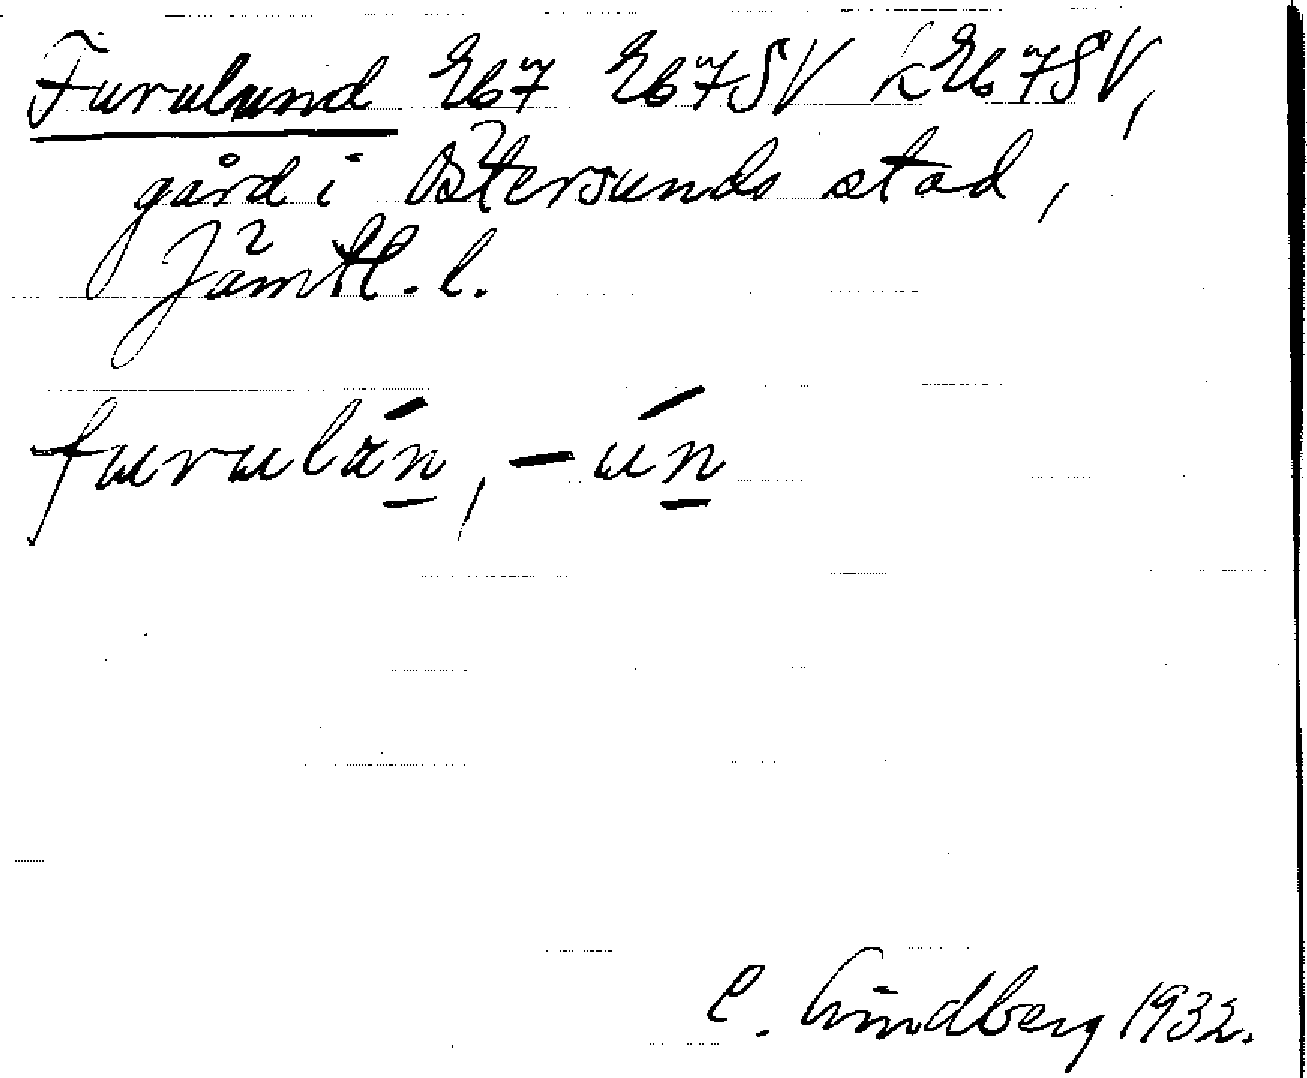 Furulund Eb7 Eb7SV kEb7SV,
gård i Östersunds stad,
Jämtl. l.
furulán, -ún
C. Lindberg 1932.